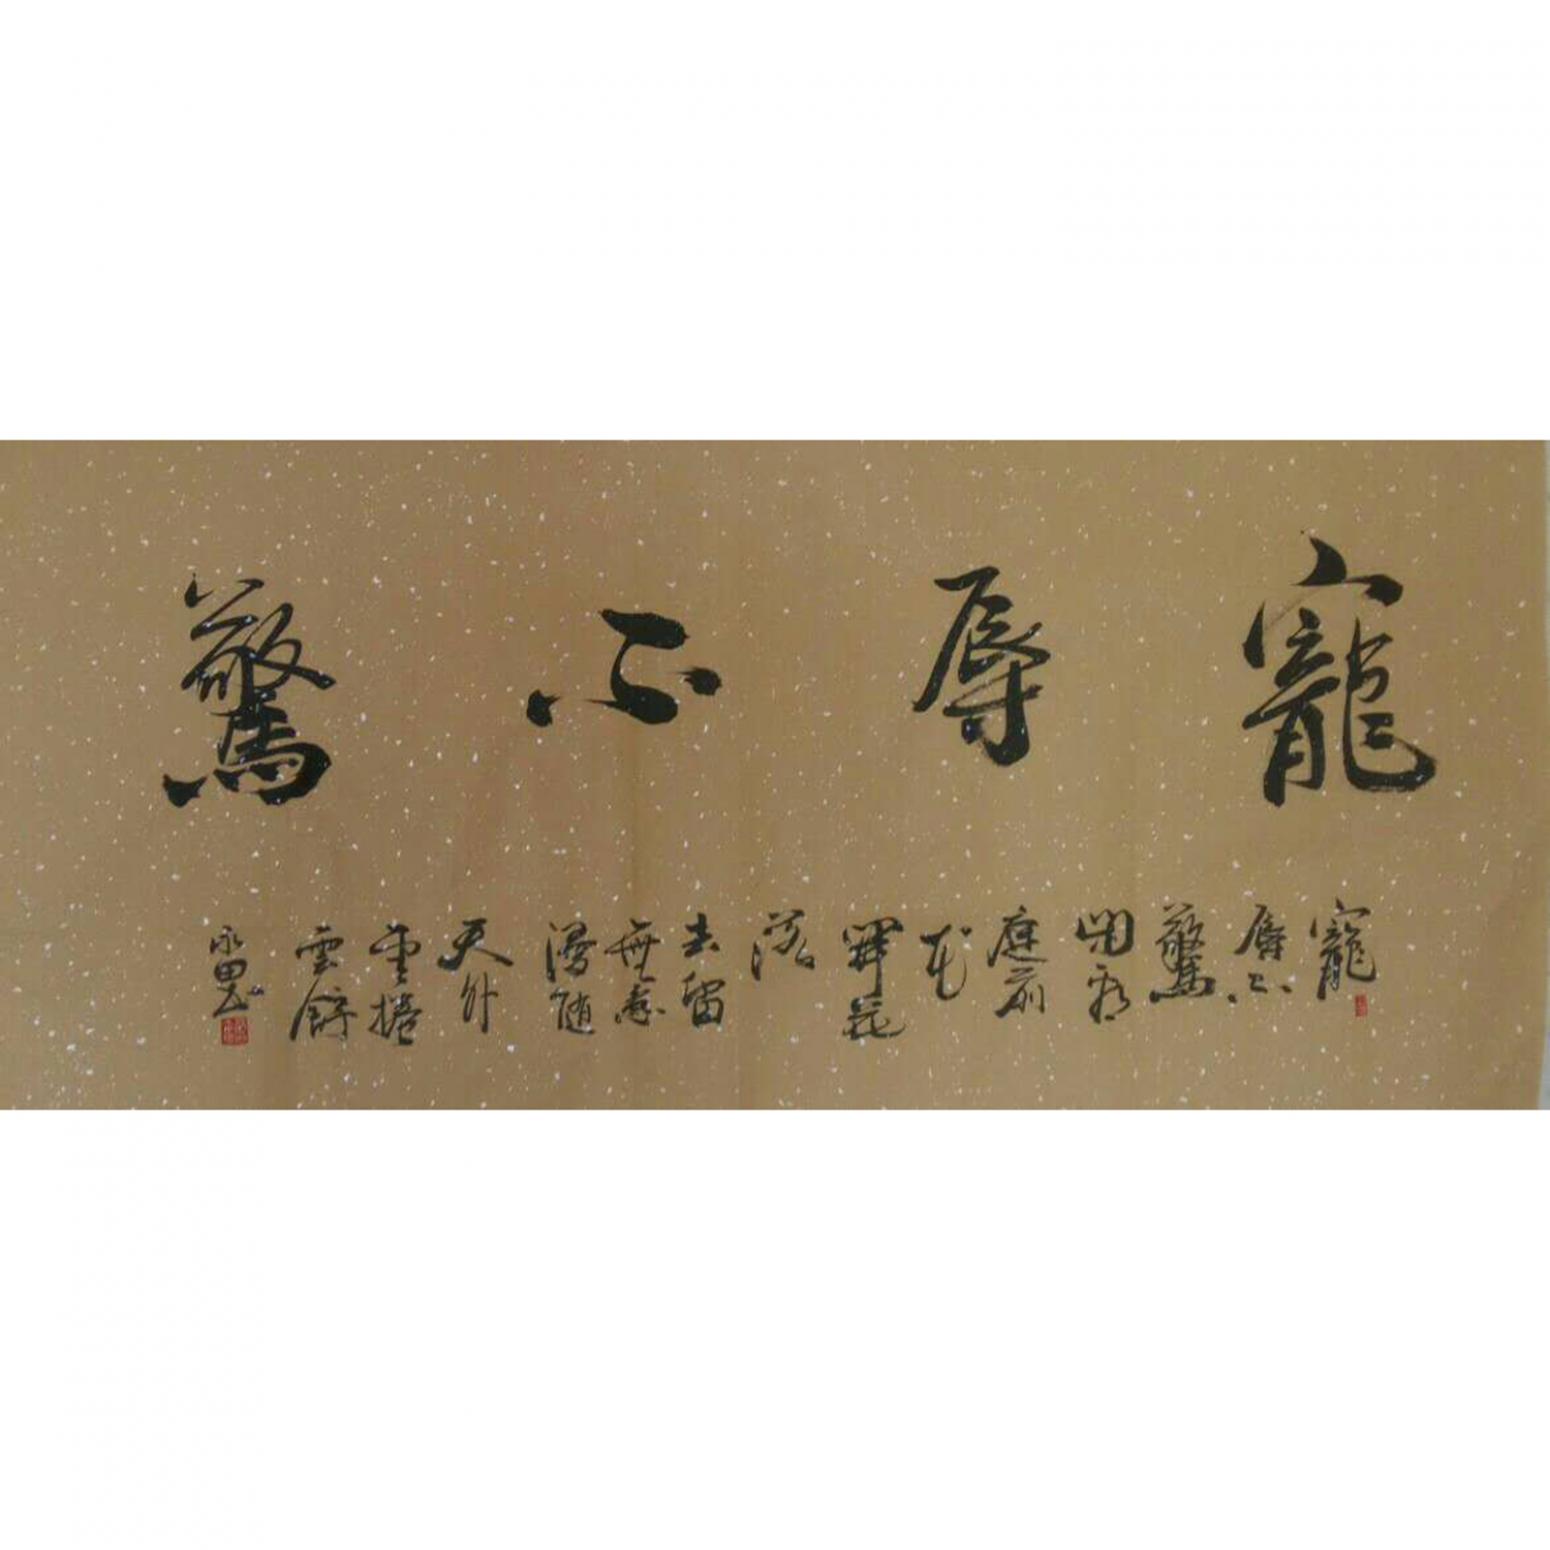 寵辱不驚
寵
辱不
驚
閒看
庭前
花
開花
落
去留
無意
漫隨
天外
雲捲
雲舒
永田书